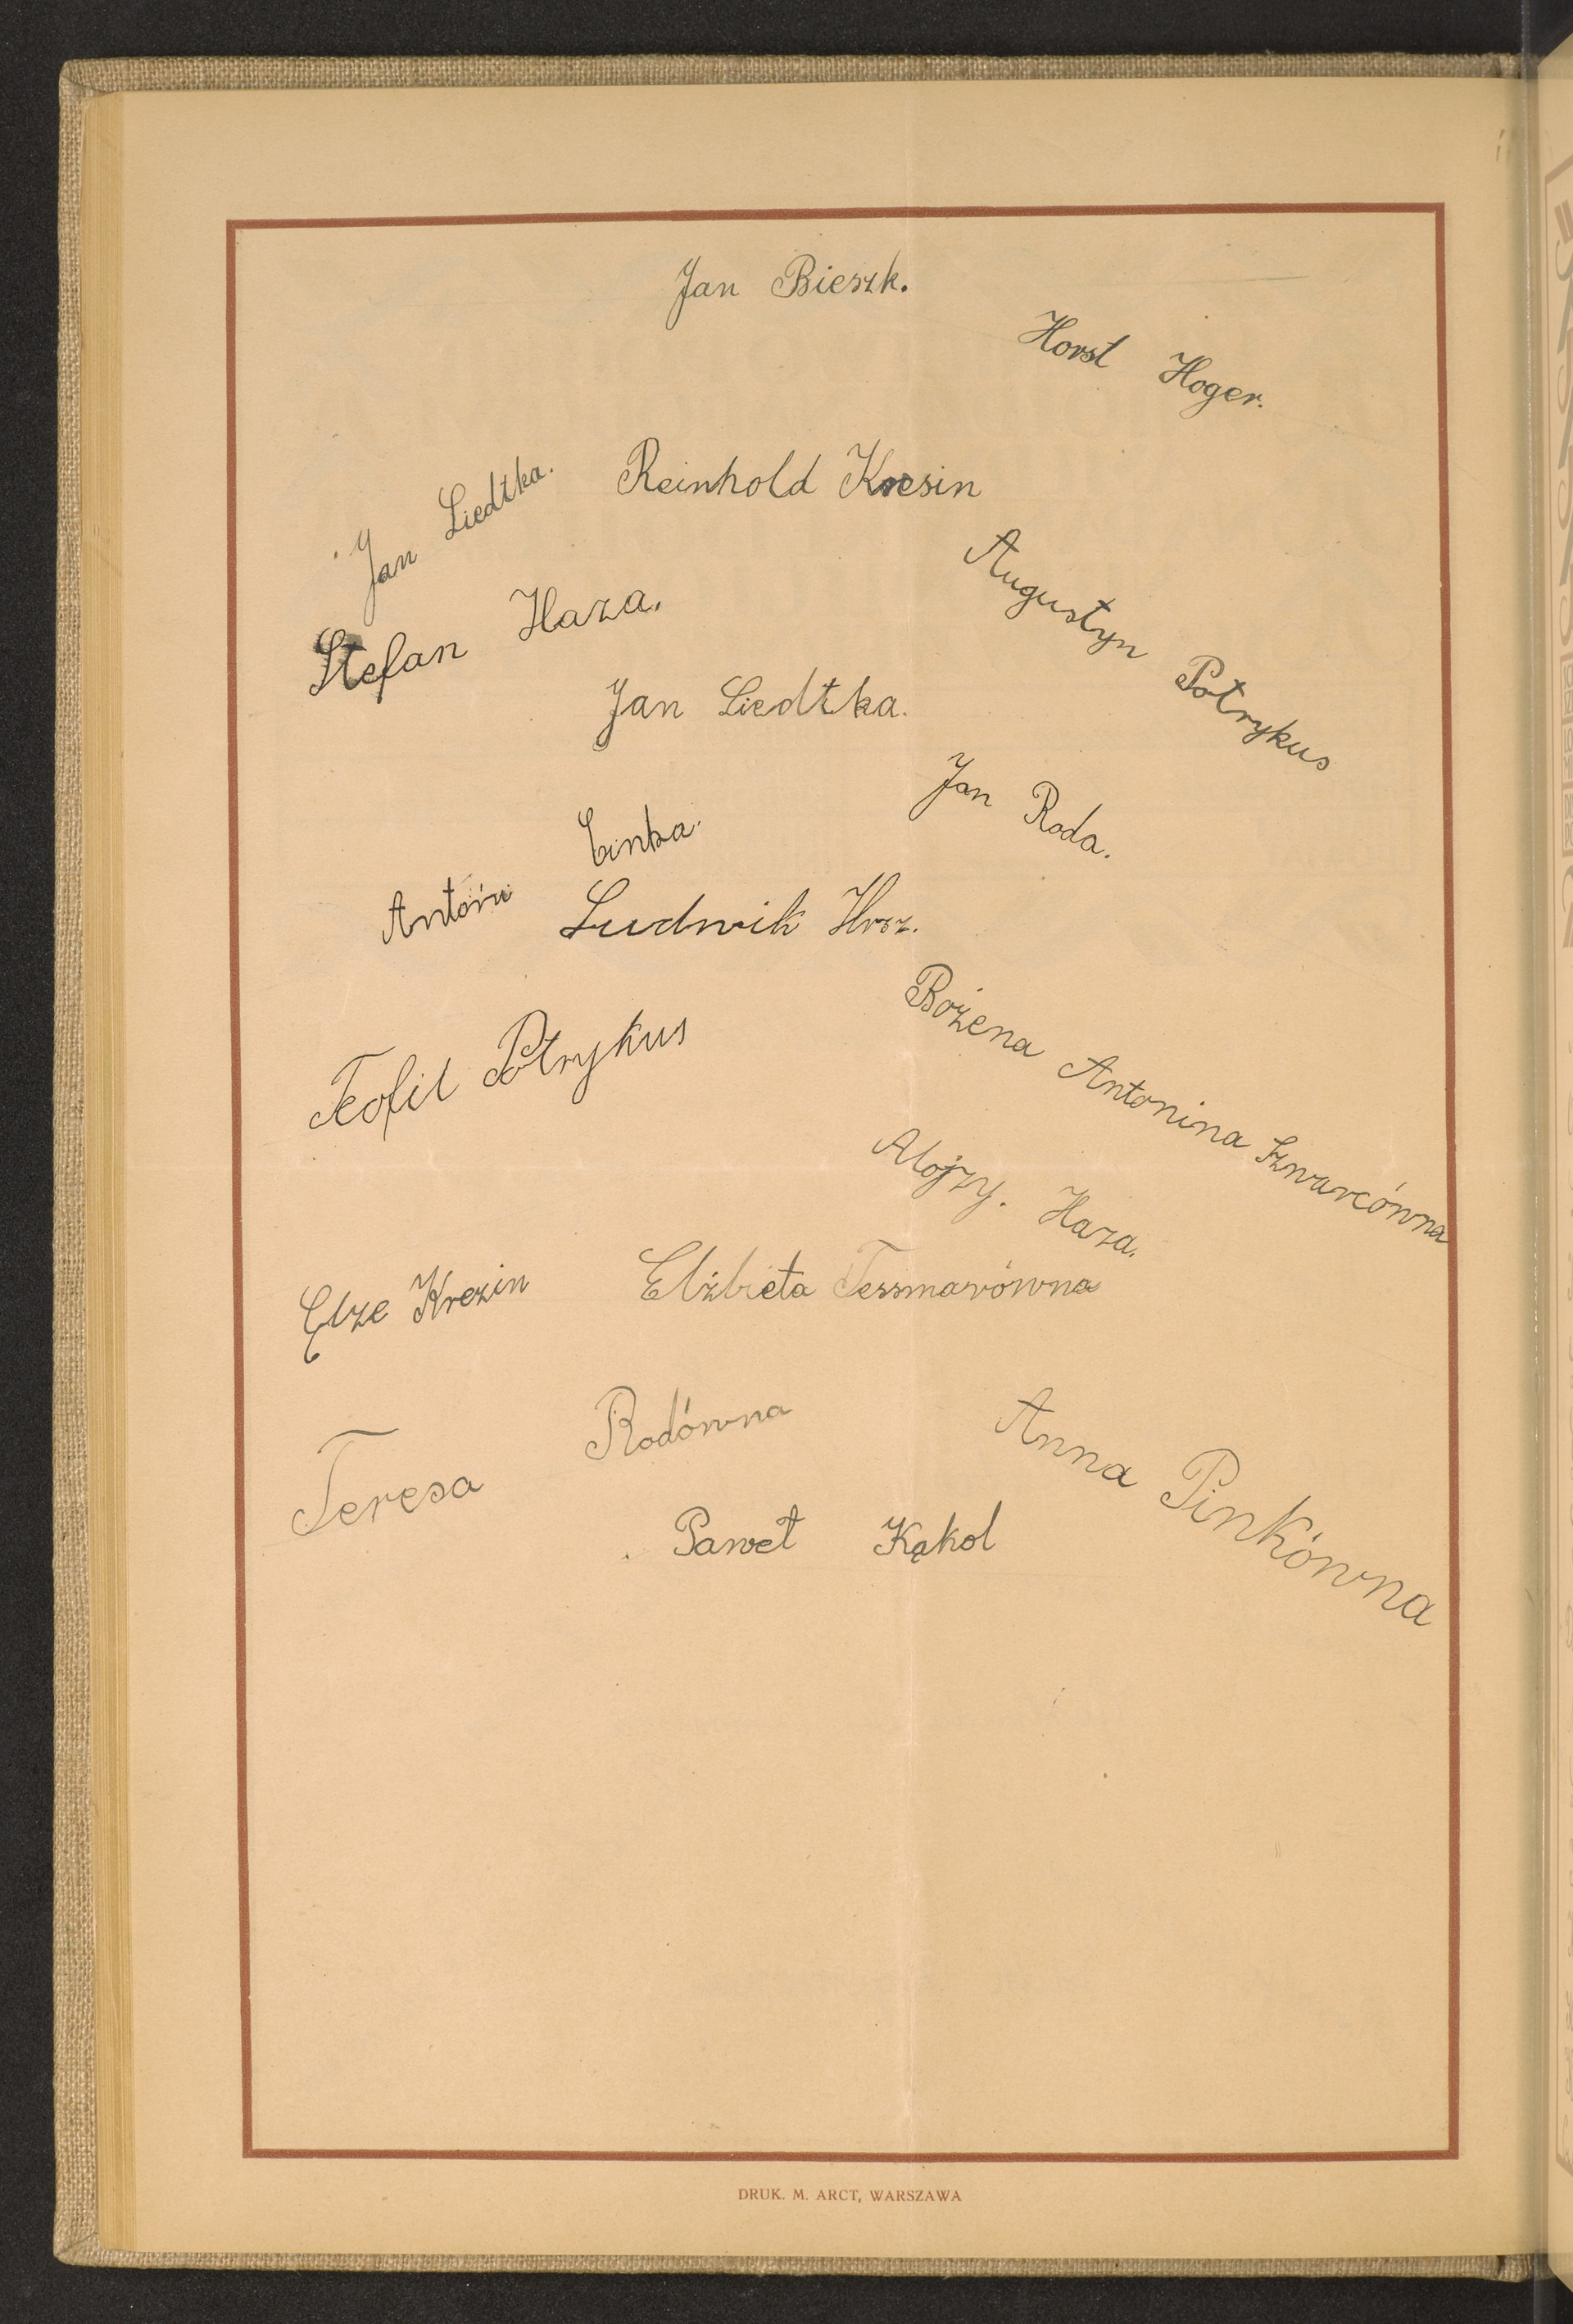 Jan Bieszk.
Horst Hoger.
Jan Liedtka.
Reinhold Kresin
Stefan Haza.
Augustyn Potrykus
Jan Liedtka.
Jan Roda.
Antoni
Ludwik
Teofil Potrykus
Bożena Antonina Szwarcówna
Alojzy. Haza.
Elze Krezin
Elżbieta Tessmarówna
Teresa Rodówna
Anna Pinkówna
Paweł Kąkol
DRUK. M. ARCT, WARSZAWA